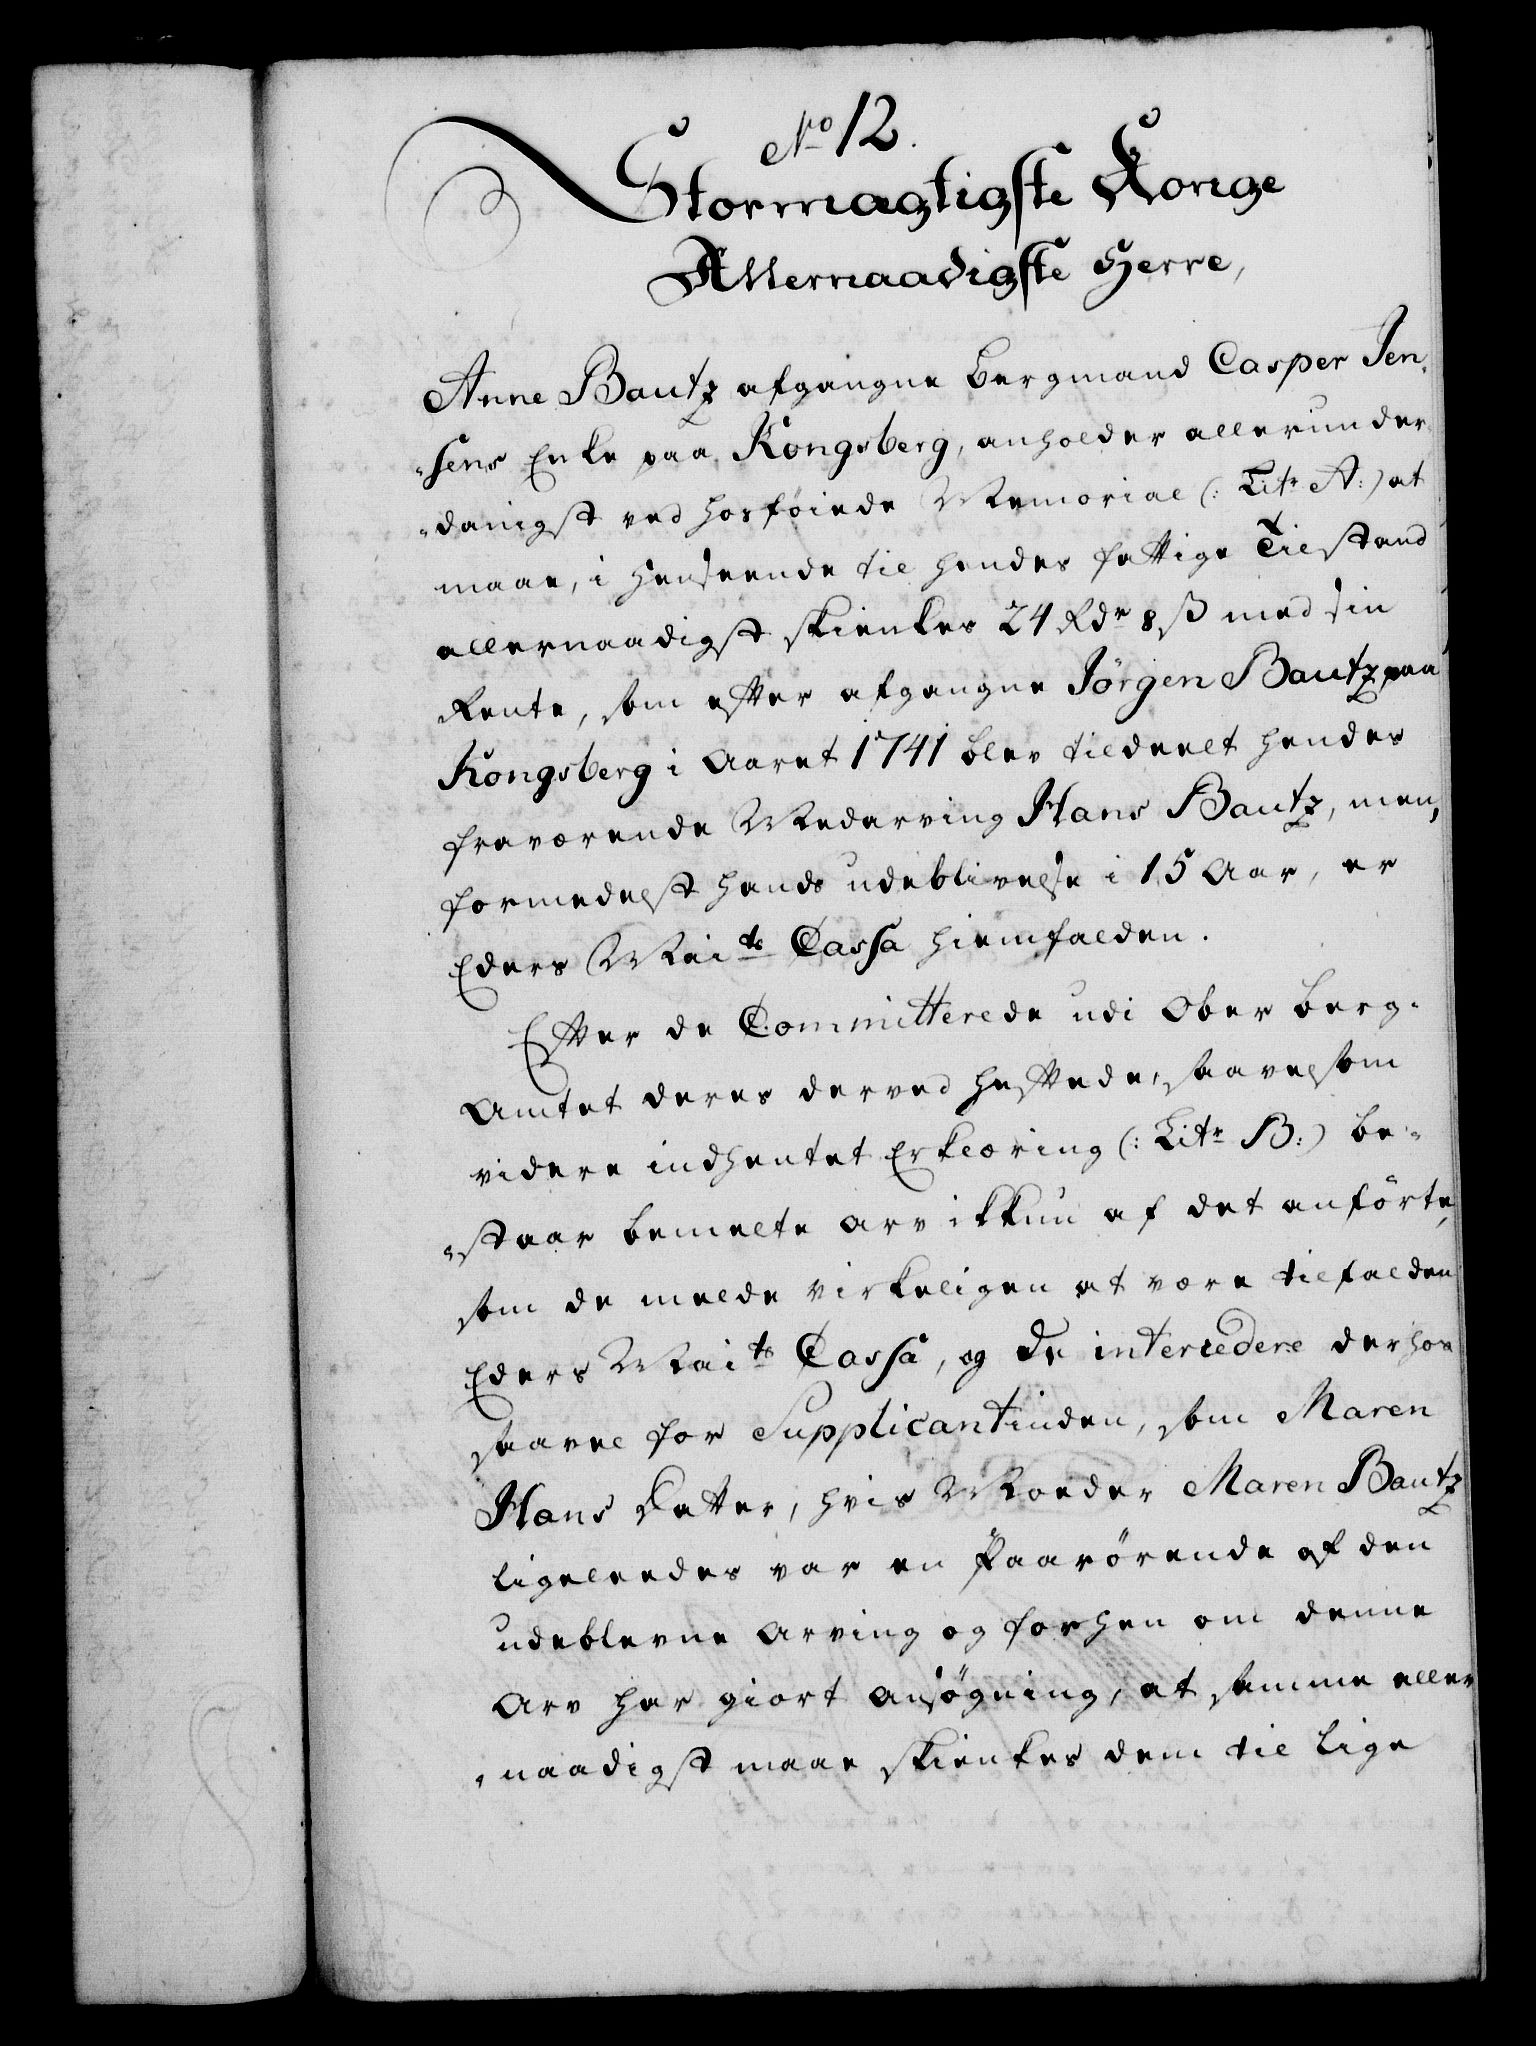 No 12.
Stormagtigste Konge
Allernaadigste Herre,
Anne Bautz afgangne Bergmand Casper Jen-
-sens Enke paa Kongsberg, anholder allerunder-
-danigst ved hosföiede Memorial (: Litr A:) at
maae, i Henseende til hendes fattige Tilstand
allernaadigst skienkes 24 Rdr 8 ß med sin
Rente, som efter afgangne Jörgen Bautz paa
Kongsberg i Aaret 1741 blev tildeelt hendes
fraværende Medarving Hans Bautz, men,
formedelst hands udeblivelse i 15 Aar, er
Eders Maits Cassa hiemfalden.
Efter de Committerede udi Ober Berg-
Amtet deres derved heftede, saavelsom
videre indhentet Erklæring (: Litr B:) be-
-staar bemelte Arv ikkun af det anförte,
som de melde virkeligen at være tilfalden
Eders Maits Cassa, og De intercedere derhos
saavel for Supplicantinden, som Maren
Hans Datter, hvis Moeder Maren Bautz
ligeleedes var en Paarörende af den
udeblevne Arving og forhen om denne
Arv har giort Ansögning, at samme aller-
-naadigst maae skienkes dem til lige